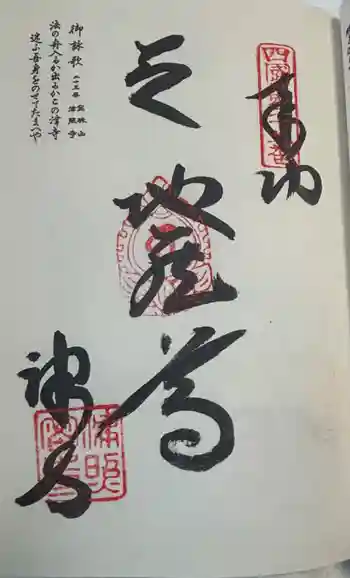 奉納
地蔵尊
津寺
御詠歌
二十五番 宝珠山 津照寺
法の舟入るか出るかこの津寺
迷ふ吾身をのせてたまへや